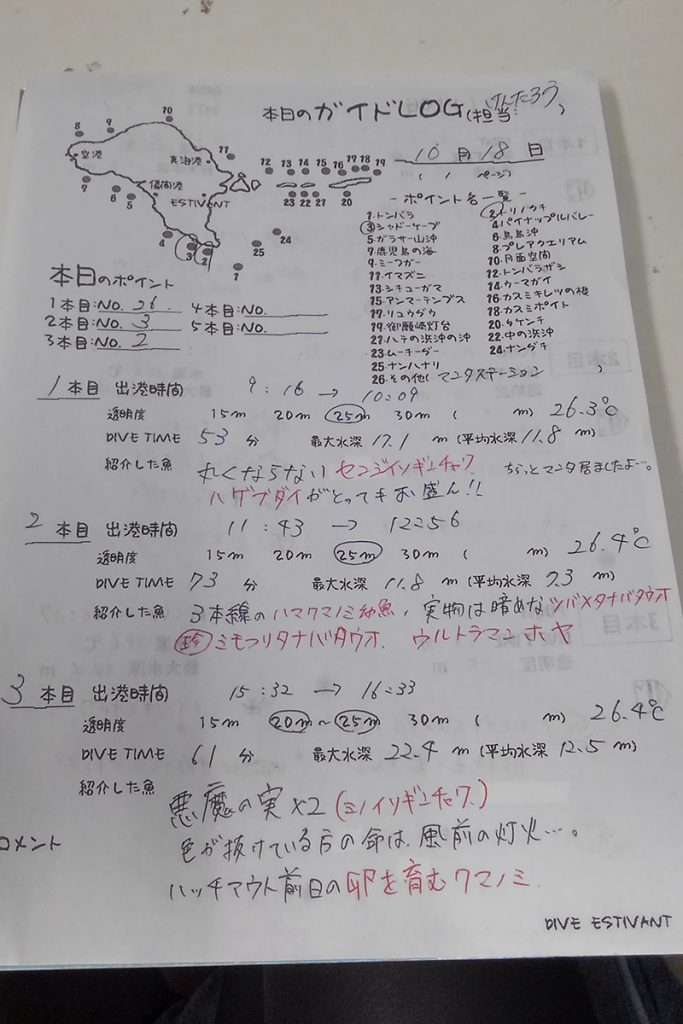 本日のガイドLOG(担当:けんたろう)
10月18日
(1ページ)
10
8
9
空港
真泊港
11
12
13
14
15
16
17
18
19
儀間港
7
6
5
ESTIVANT
23
22
21
20
4
3
2
25
24
1
-ポイント名一覧-
1.トンバラ
2.トリノクチ
3シャドーケーブ
4.パイナップルバレー
5.ガラサー山沖
6.鳥島沖
7.鹿児島の海
8.プレアクエリアム
9.ミーフガー
10.月面空間
11.イマズニ
12.トンバラザシ
13.シチューガマ
14.ウーマガイ
15.アンマーテンブス
16.カスミキレツの根
17.リュウダウ
18.カスミポイント
19.御願崎灯台
20.タケンチ
21.ハテの浜沖の沖
22.中の浜沖
23.ムーチーダー
24.ナンダキ
25.ナンハナリ
26.その他(マンタステーション)
本日のポイント
1本目:NO. 26
4本目:NO.
2本目:NO. 3
5本目:NO.
3本目:NO. 2
1本目 出港時間 9:16→10:09
透明度 15m 20m 25m 30m ( m) 26.3℃
DIVE TIME 53分 最大水深17.1m(平均水深11.8m)
紹介した魚 丸くならないセンジイソギンチャク ちらっとマンタ居ましたよ…。
ハゲブダイがとってもお盛ん!!
2本目 出港時間 11:43→12:56
透明度 15m 20m 25m 30m ( m) 26.4℃
DIVE TIME 73分 最大水深11.8m(平均水深7.3m)
紹介した魚 3本線のハマクマノミ幼魚、実物は暗めなツバメタナバタウオ
珍 ミモフリタナバタウオ、ウルトラマンホヤ
3本目 出港時間 15:32→16:33
透明度 15m 20m~25m 30m ( m) 26.4℃
DIVE TIME 61分 最大水深22.4m(平均水深12.5m)
紹介した魚
悪魔の実×2(ミノイソギンチャク)
コメント
色が抜けている方の命は、風前の灯火…。
ハッチアウト前日の卵を育むクマノミ
DIVE ESTIVANT